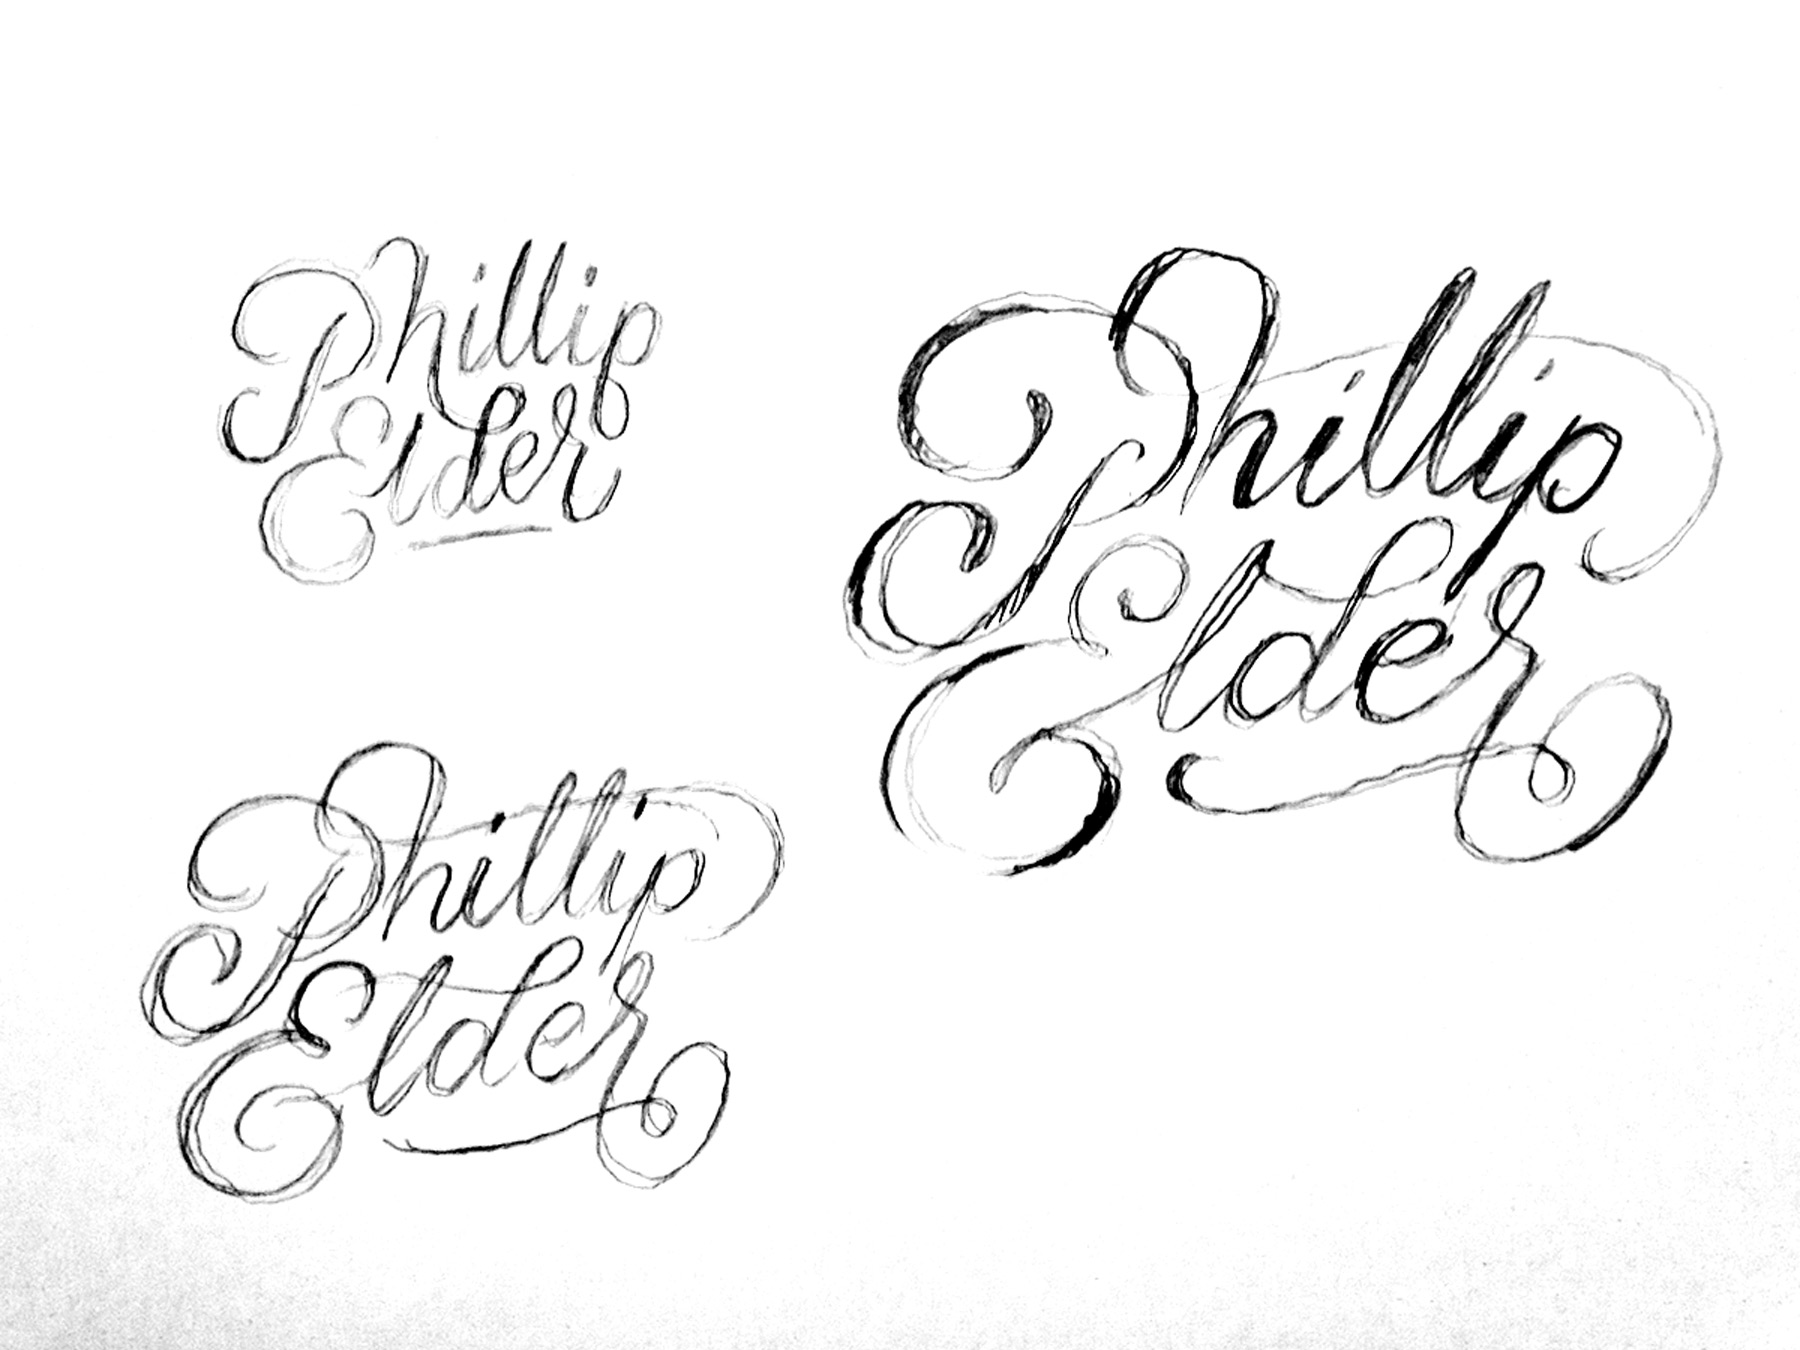 Phillip
Elder
Phillip
Elder
Phillip
Elder